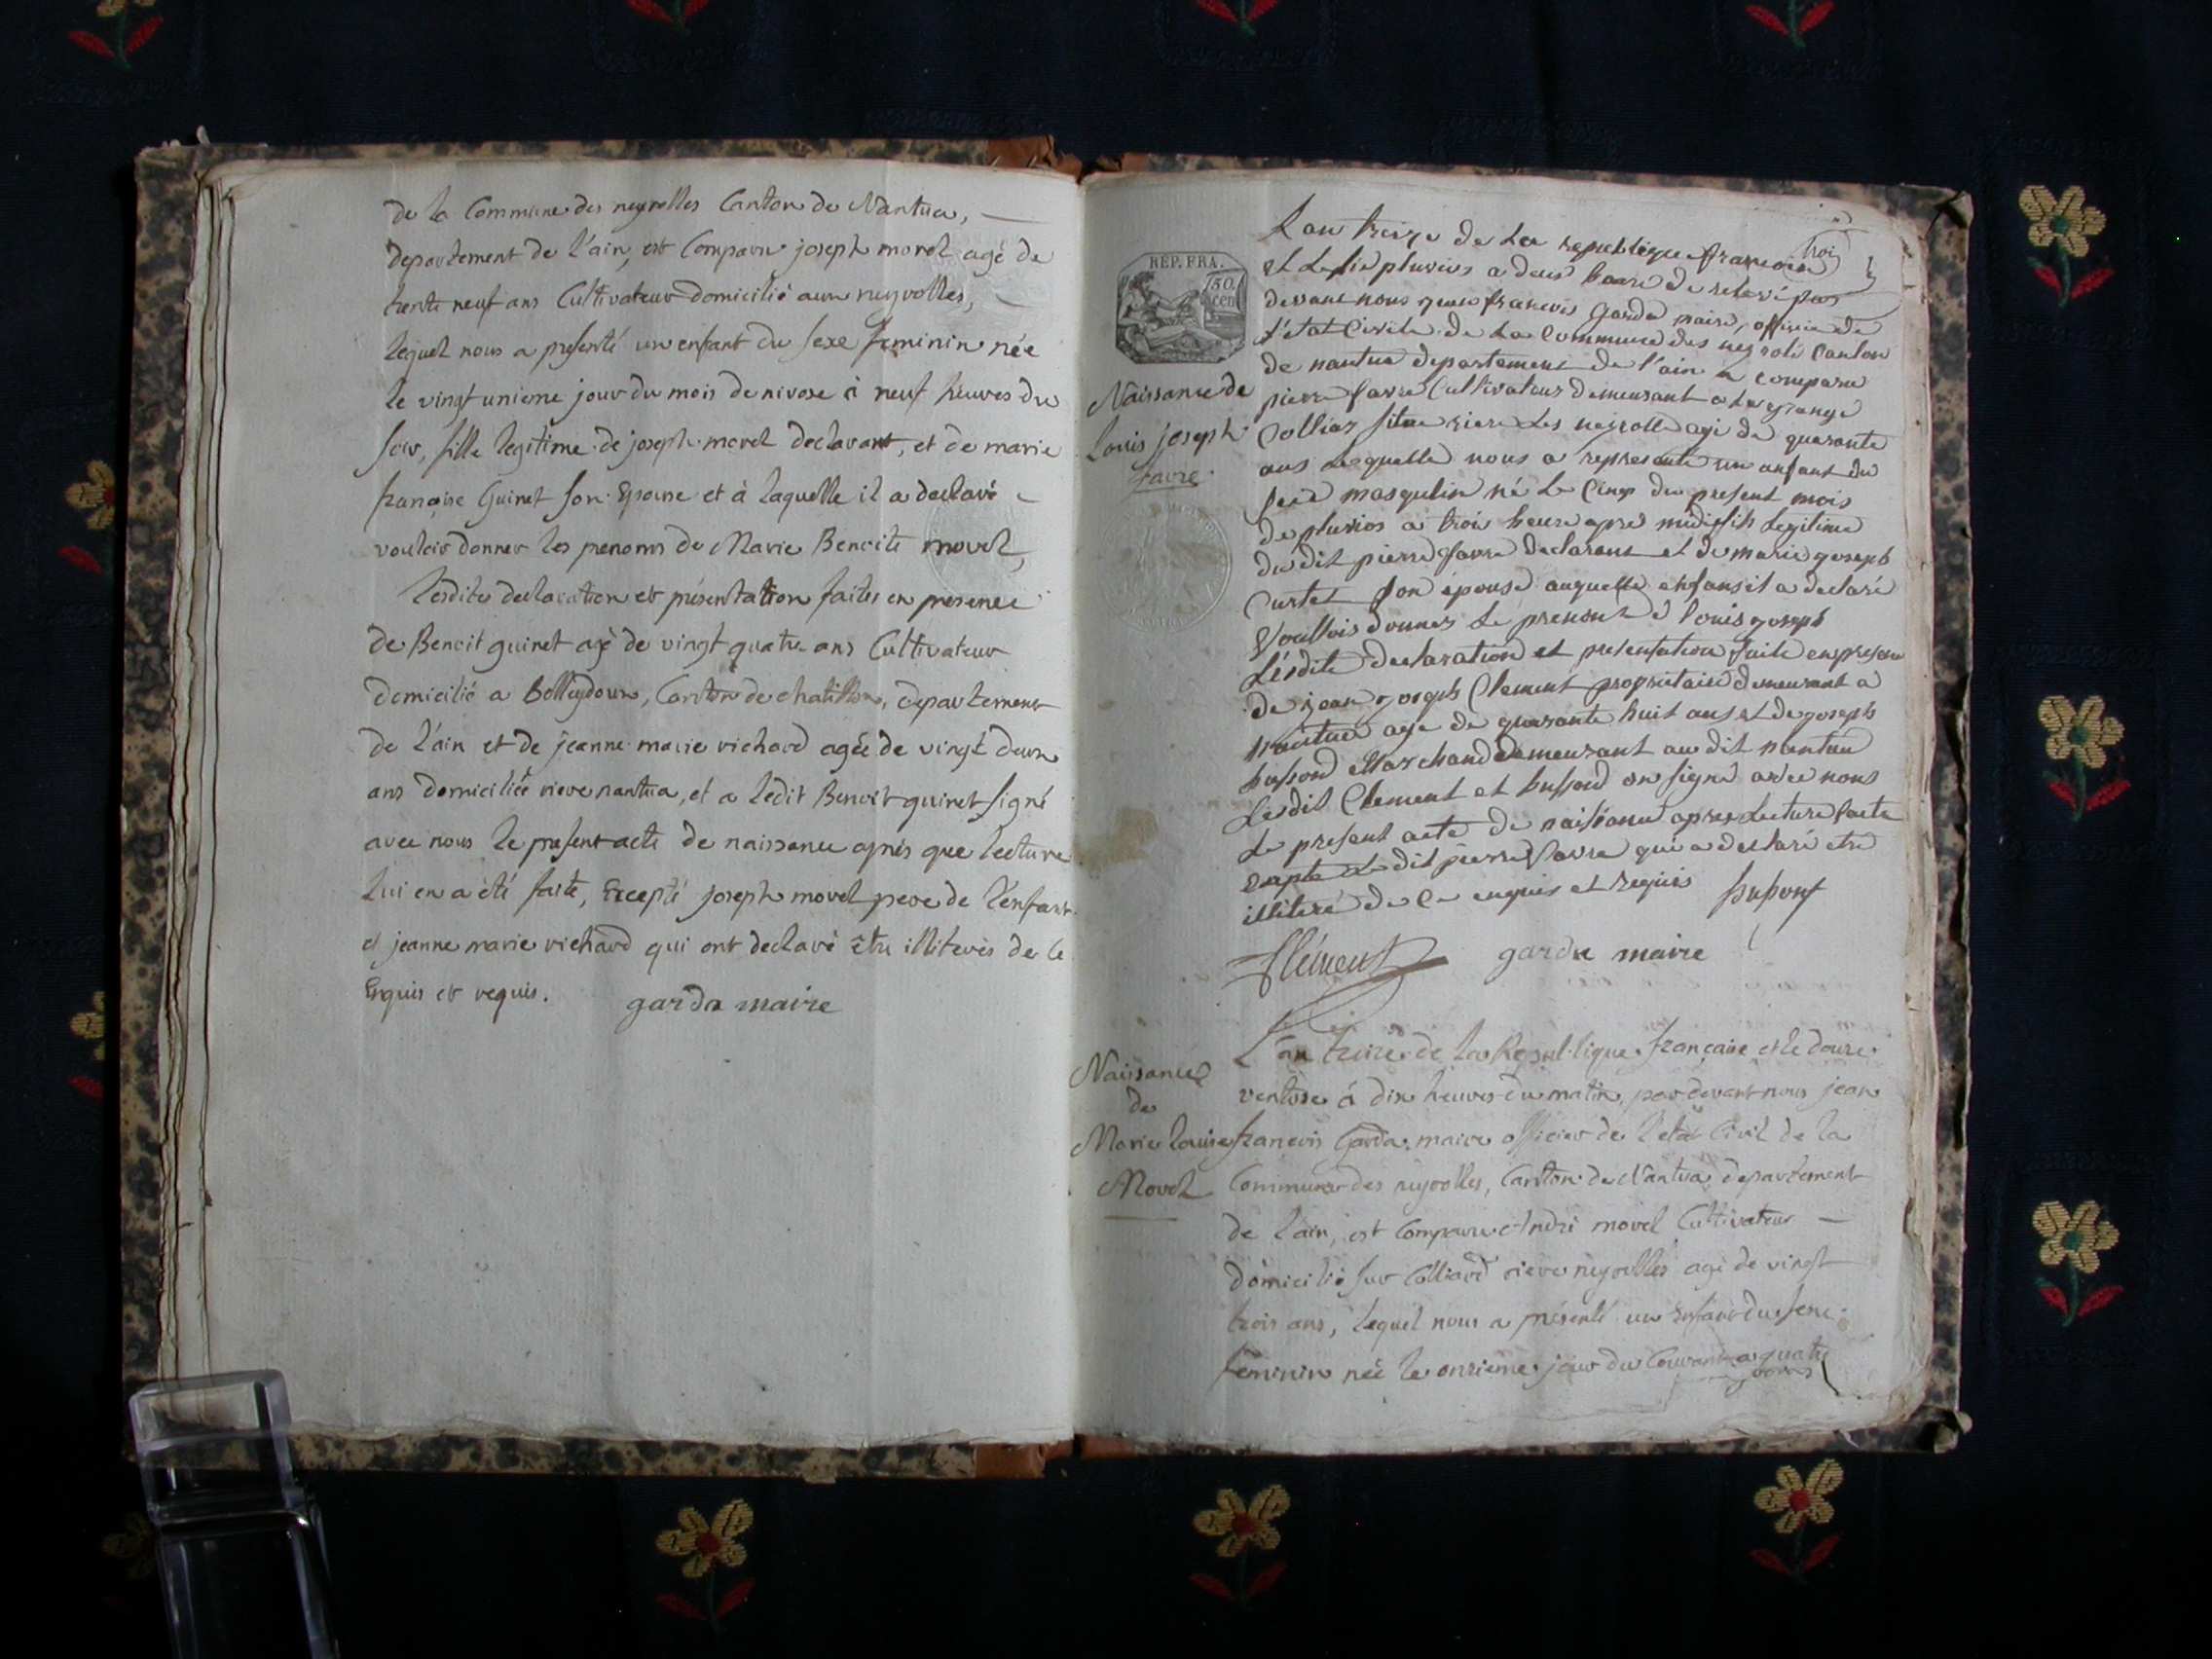 de la Commune des neyrolles Canton de Nantua,
departement de l'ain, est Comparu joseph morel agé de
trente neuf ans Cultivateur domicilié aux neyrolles,
lequel nous a presenté un enfant du sexe feminin née
le vingt unieme jour du mois de nivose à neuf heures du
soir, fille legitime de joseph morel declarant, et de marie
françoise Guinet son Epouse et à laquelle il a declaré
vouloir donner les prenoms de Marie Benoite morel,
lesdites declaration et présentation faites en presence
de Benoit guinet agé de vingt quatre ans Cultivateur
domicilié a Belleydoux, Canton de chatillon, departement
de l'ain et de jeanne marie richard agée de vingt deux
ans domiciliée riere nantua, et a ledit Benoit guinet signé
avec nous le present acte de naissance après que lecture
lui en a été faite, Excepté joseph morel pere de l'enfant
et jeanne marie richard qui ont declaré être illiterés de ce
Enquis et requis. garda maire
trois
REP. FRA.
50
cen
Naissance de
Louis joseph
favre
L an treize de La republique francoise
et Le six pluvios a deux heure de relevé par
devant nous jean francois Garda maire, officie de
l'état Civile de La Commune des neyrole Canton
de nantua departement de l'ain a comparu
pierre favre Cultivateur demeurant a La grange
Colliar situe riere Les neyrolle agé de quarante
ans Lequelle nous a representé un anfant du
sexe masqulin né Le Cinq du present mois
de pluvios a trois heure apré midi fils Legitime
du dit pierre favre declarant et de marie joseph
Curtet son épouse auquelle enfans il a declaré
Voullois donner Le prenont d Louis joseph
Lésdite declaration et presentation faite en presence
de jean joseph Clement propriétaire demeurant a
Nantua age de quarante huit ans et de joseph
Marchand demeurant au dit nantua
Le dit Clement et on signé avec nous
Le present acte de naissance apres Lecture faite
Le dit pierre favre qui a declaré etre
illiteré de Ce enquis et requis
Clément garda maire
Naissance
de
Marie Louise
Morel
L'an treize de la Republique française et le douze
ventose à dix heures du matin, par devant nous jean
françois Garda maire officier de l'etat Civil de la
Commune des neyrolles, Canton de Nantua departement
de l'ain, est Comparu André morel Cultivateur
domicilié sur Colliard riere neyrolles agé de vingt
trois ans, lequel nous a présenté un Enfant du sexe
feminin née le onzieme jour du Courant a quatre